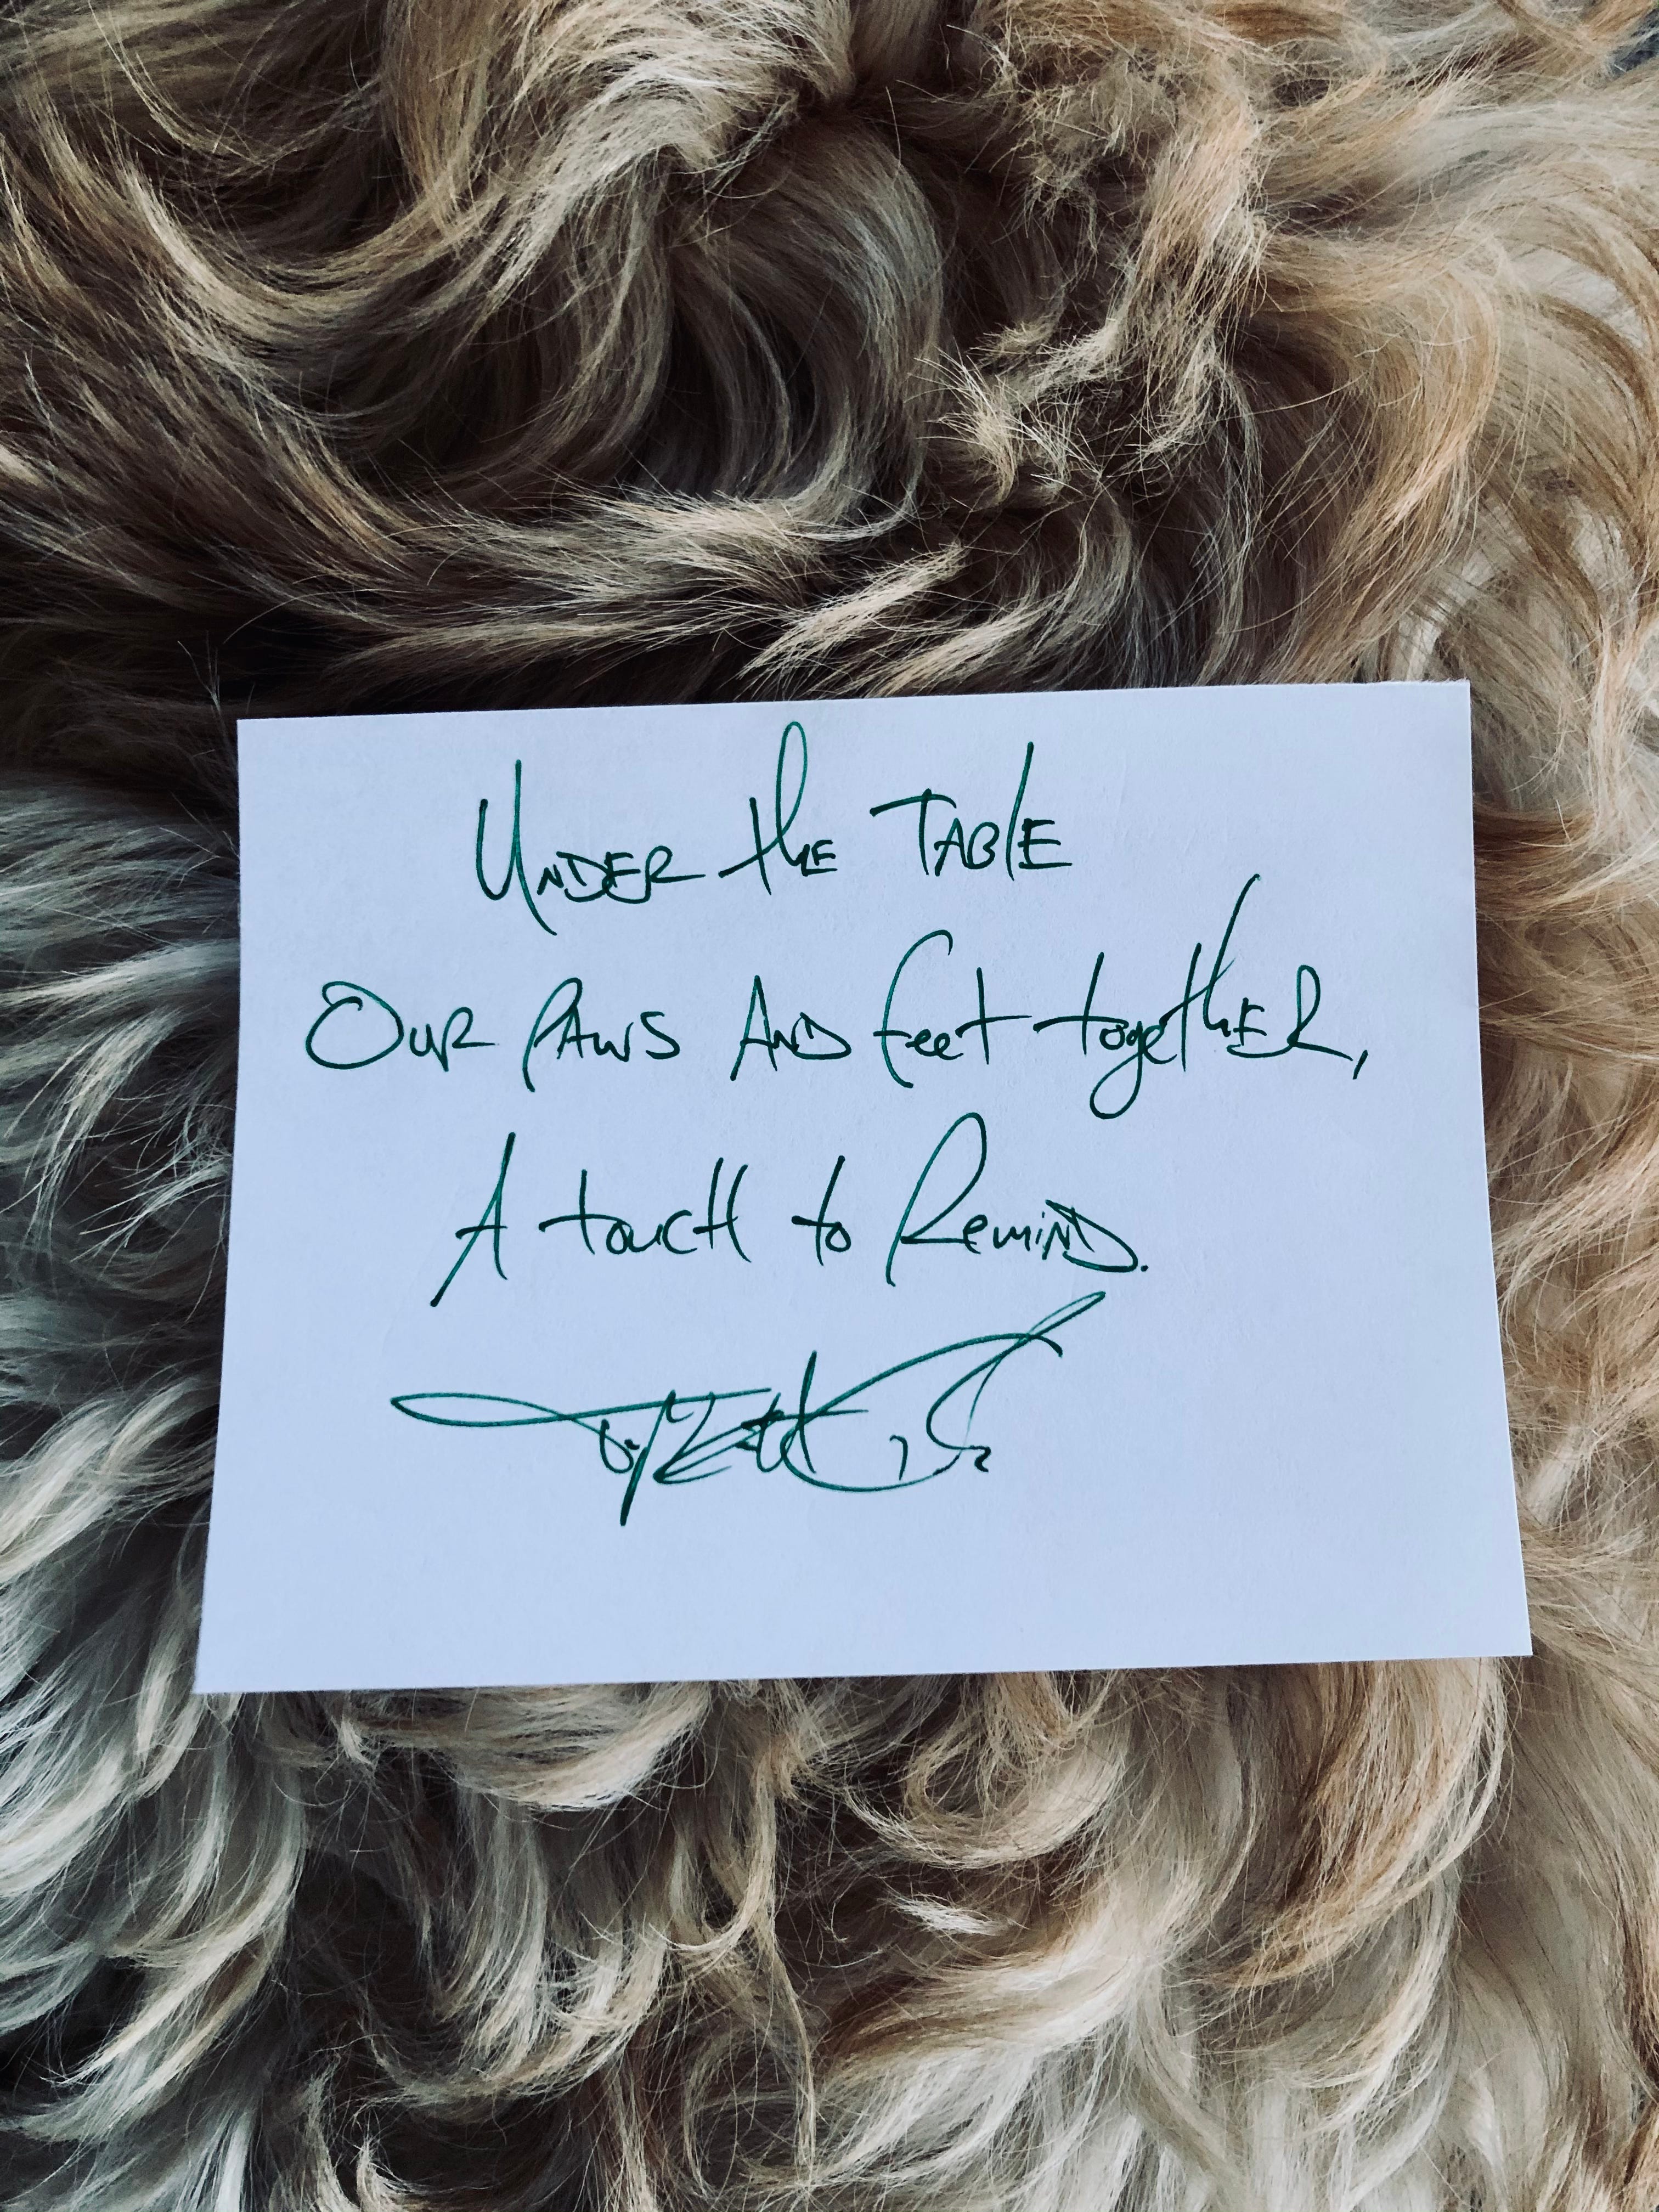 Under the Table
Our Paws And feet together,
A touch to Remind.